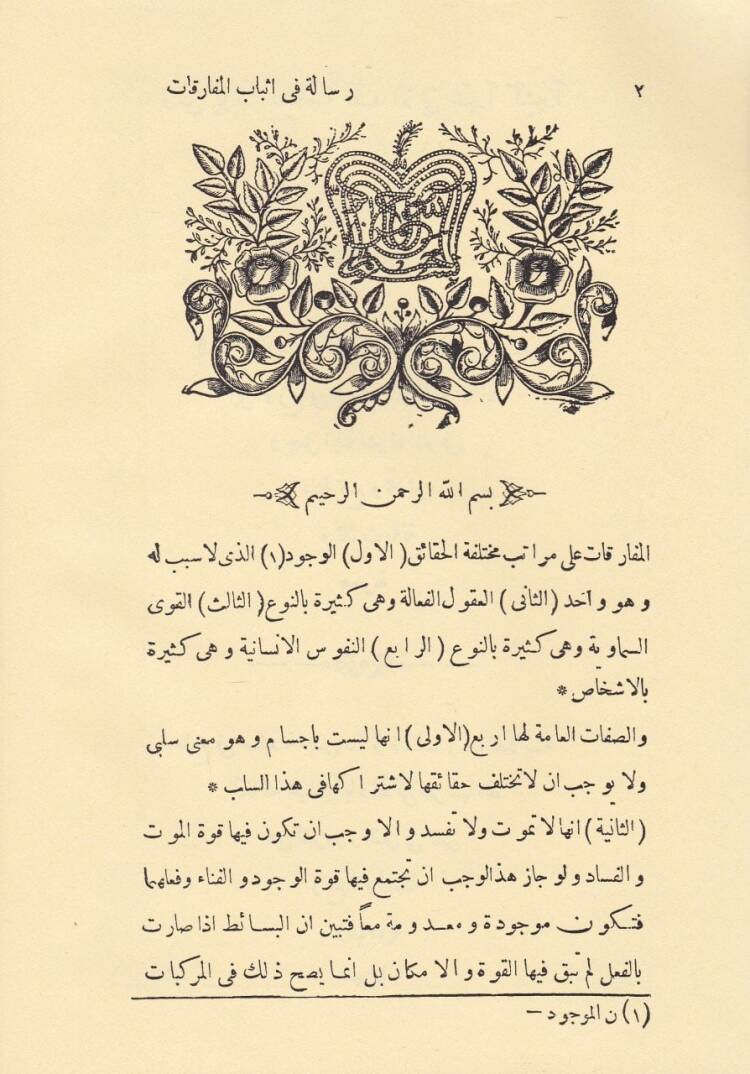 ٢ رسالة فى اثباب المفارقات
بسم الله الرحمن الرحيم
المفارقات على مراتب مختلفة الحقائق (الاول) الوجود (١) الذى لا سبب له
و هو واحد (الثانى) العقول الفعالة وهى كثيرة بالنوع (الثالث) القوى
السماوية وهى كثيرة بالنوع (الرابع) النفوس الانسانية و هى كثيرة
بالاشخاص *
والصفات العامة لها اربع (الاولى) انها ليست باجسام و هو معنى سلبى
ولا يوجب ان لا تختلف حقائقها لاشتراكها فى هذا الساب *
(الثانية) انها لا تموت ولا تفسد و الا وجب ان تكون فيها قوة الموت
و الفساد و لو جاز هذا لوجب ان تجتمع فيها قوة الوجود و الفناء وفعلهما
فتكون موجودة و معدومة معاً فتبين ان البسائط اذا صارت
بالفعل لم تبق فيها القوة و الامكان بل انما يصح ذلك فى المركبات
(١) ن الموجود —